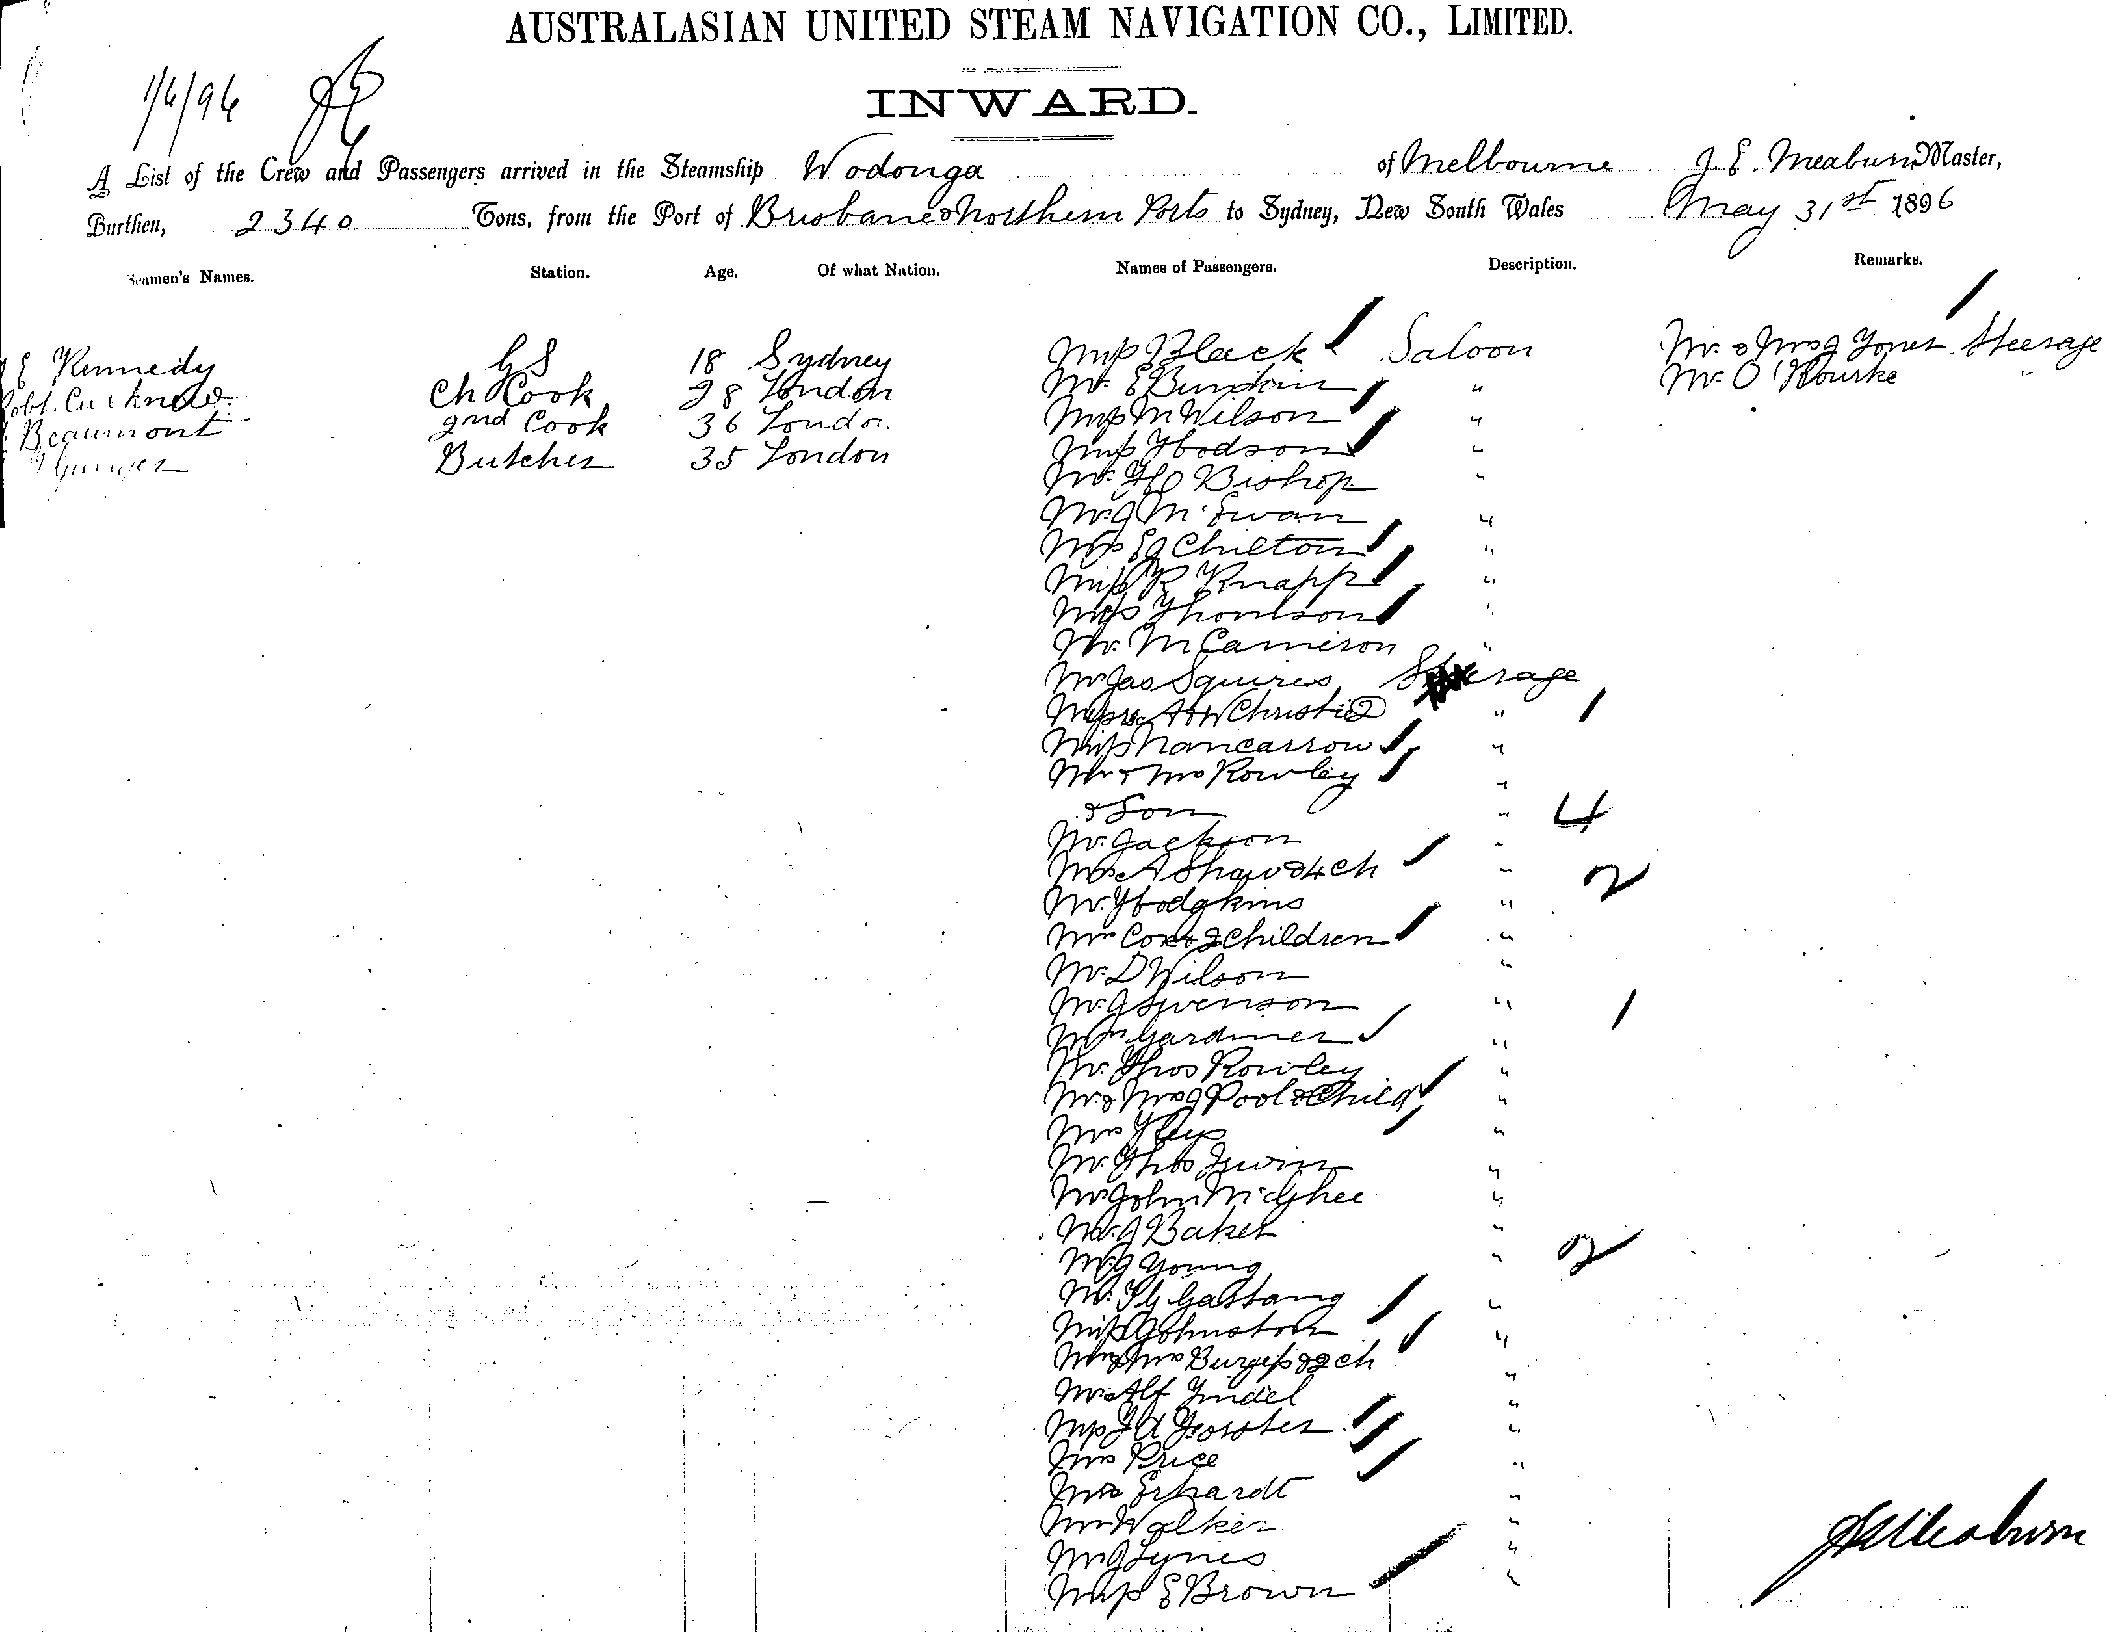 AUSTRALASIAN UNITED STEAM NAVIGATION CO., LIMITED.
INWARD.
1/6/96
A List of the Crew and Passengers arrived in the Steamship Wodonga of Melbourne J. E. Meaburn Master,
Burthen, 2340 Tons, from the Port of Brisbane & Northern Ports to Sydney, New South Wales May 31st 1896
Seamen's Names. Station. Age. Of what Nation. Names of Passengers. Description. Remarks.
E Kennedy GS 18 Sydney Miss Black Saloon Mr. & Mrs J Jones Steerage
Robt. Curknow Ch Cook 28 London Mr. E " Mr. O'Rourke "
Beaumont 2nd Cook 36 London Miss M Wilson "
Butcher 35 London Miss Hodson "
Mr. Bishop "
Mr J McEwan "
Mrs E J Chilton "
Miss R Knapp "
Miss Thomson "
Mr. M Cameron "
Mr Jas Squires Steerage
Messrs A & W Christie 2 " 1
Miss Nancarrow "
Mr & Mrs Rowley "
& Son " 4
Mr. Jackson "
Mrs A Shaw & 4 ch " 2
Mr. Hodgkins "
Mrs Cox & 2 Children "
Mr. D Wilson "
Mr J Swenson " 1
Mrs Gardiner "
Mr. Thos Rowley "
Mr. & Mrs J Pool & Child "
Mrs "
Mr. Thos Irwin "
Mr John McGhee "
Mr. J Baker "
Mr J Young " 2
Mr. Gastang "
Miss Johnston "
Mr & Mrs Burgess & 2 ch "
Mr Alf Tindel "
Miss J A Forster "
Mrs Price "
Mrs Erhardt "
Mr Walker "
Mr J Lynes "
Miss E Brown "
J E Meaburn